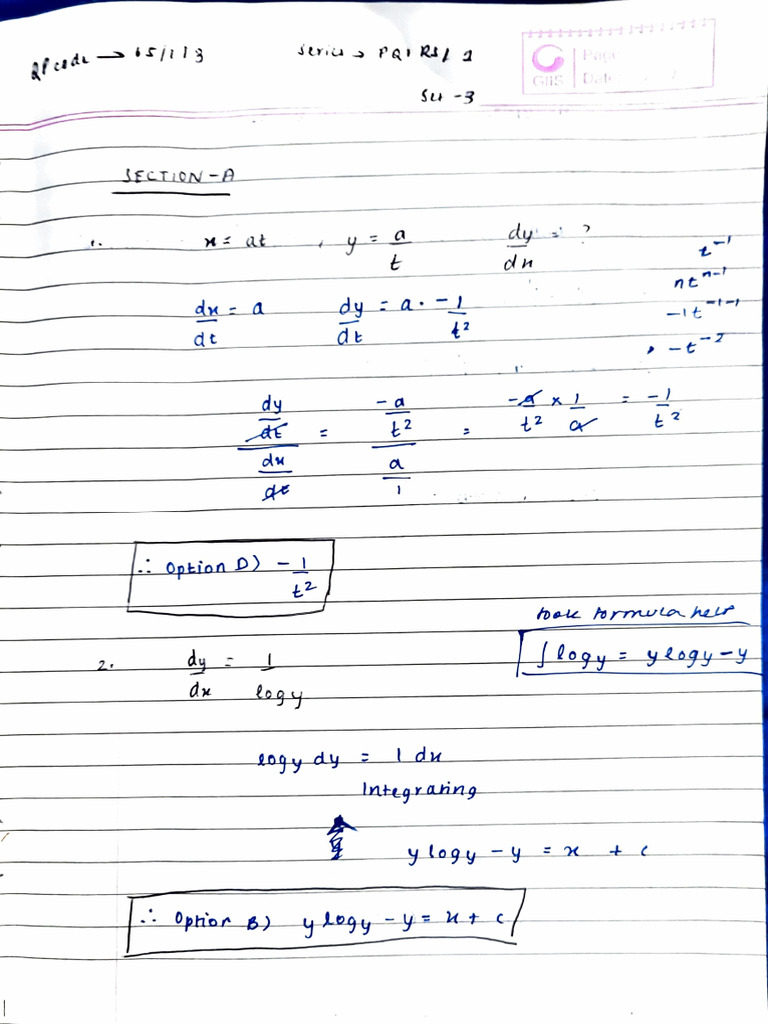 QP code → 65/1/3 Series → PQ1RS/1
Set -3
GIIS Page
Date
SECTION-A
1. x = at , y = a/t dy/dx = ?
t^-1
nt^n-1
dx/dt = a dy/dt = a · -1/t²
-1t^-1-1
-t^-2
dy/dt / dx/dt = -a/t² / a/1 = -a/t² × 1/a = -1/t²
∴ Option D) -1/t²
took formula help
∫logy = ylogy-y
2. dy/dx = 1/logy
logy dy = 1 dx
Integrating
ylogy - y = x + c
∴ Option B) ylogy - y = x + c